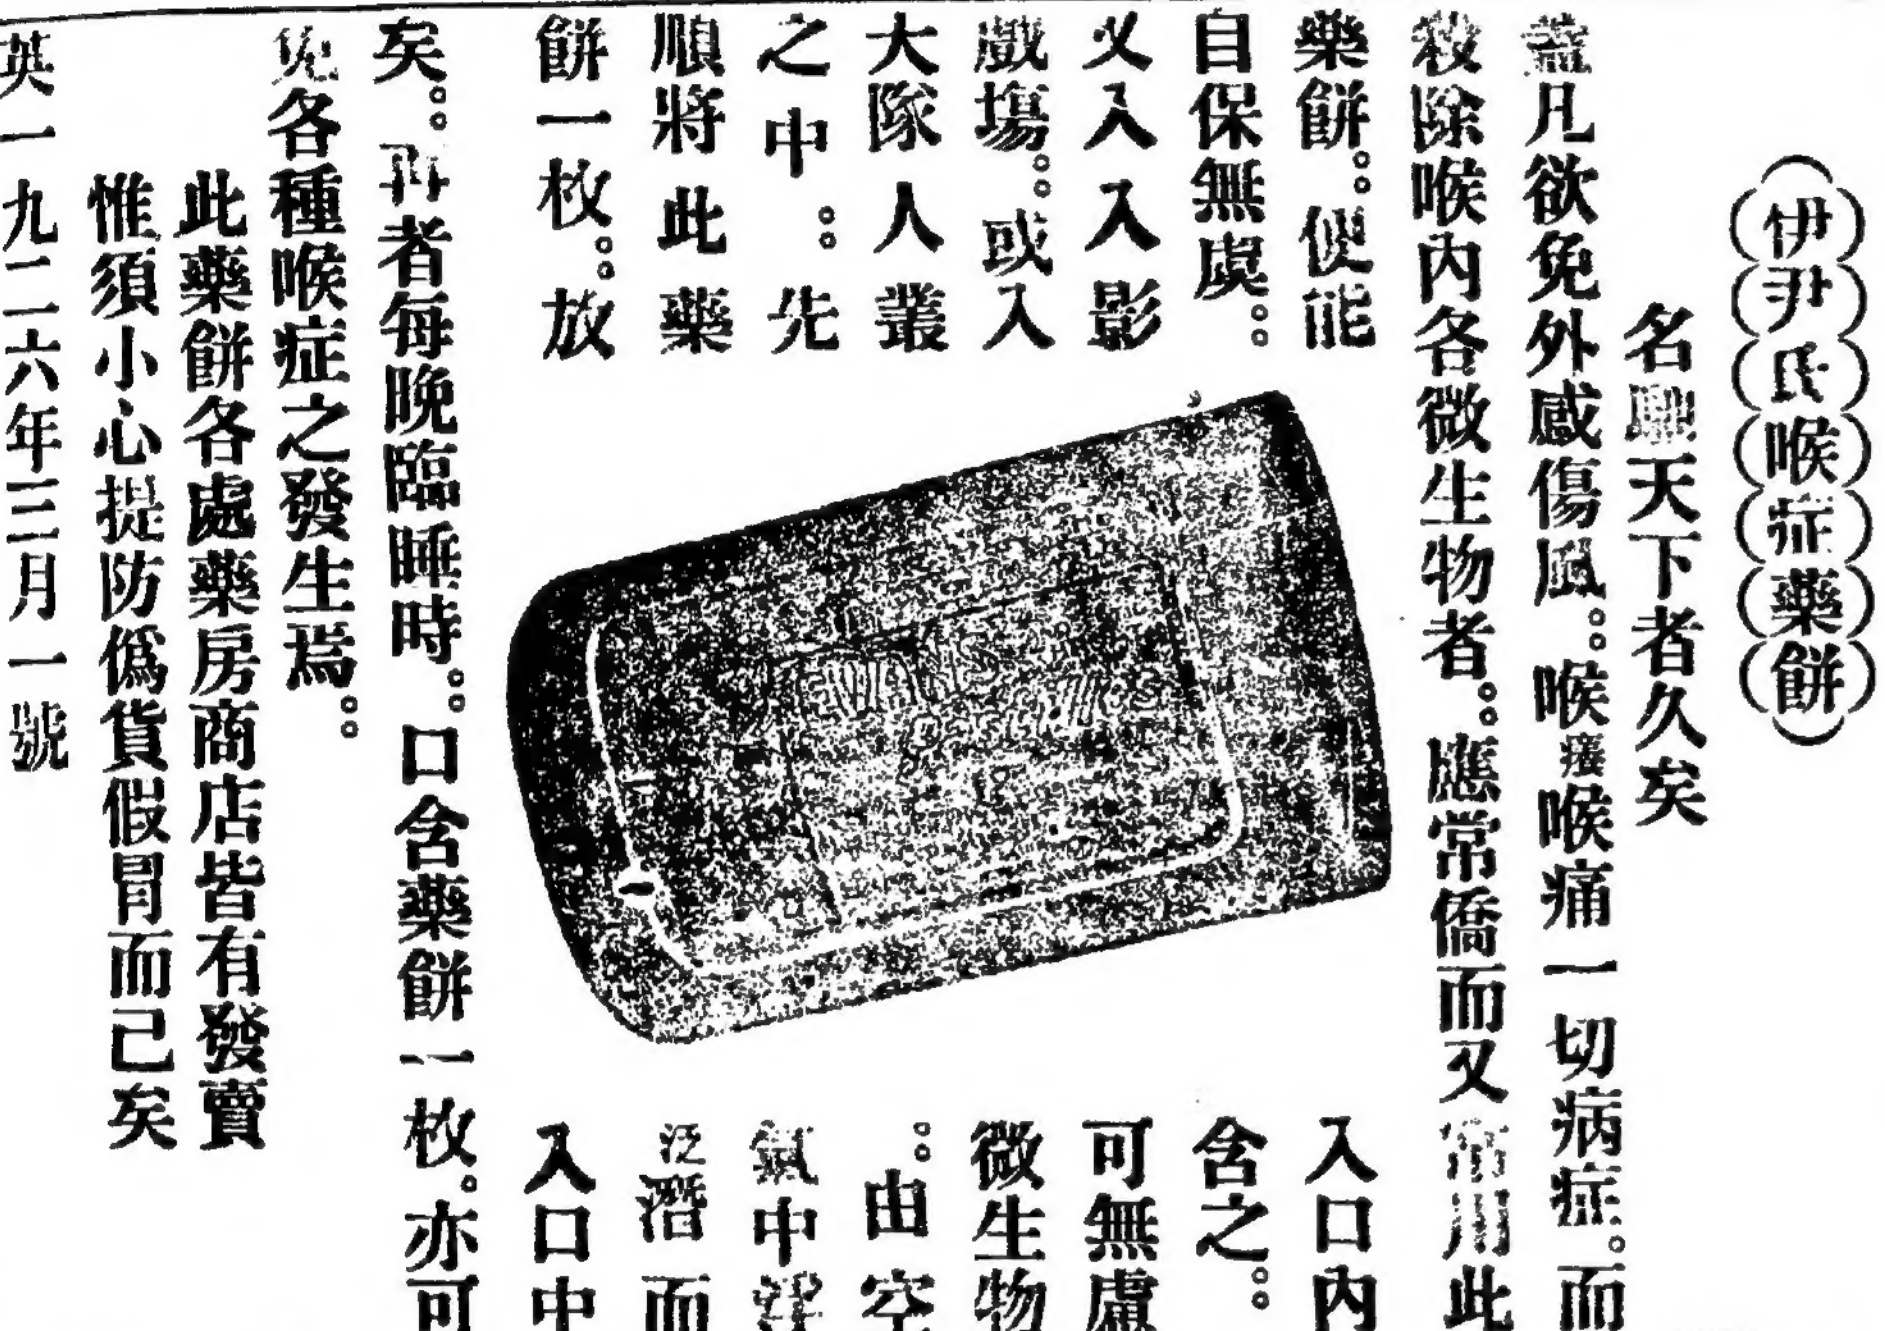 伊尹氏喉症藥餅
名馳天下者久矣
蓋凡欲免外感傷風。。喉癢喉痛一切病症。而
殺除喉內各微生物者。。應常僑而又常用此
藥餅。。便能
自保無虞。。
又入入影
戲塲。。或入
大隊人叢
之中。。先
順將此藥
餅一枚。。放
EVANS
Pastilles
入口內
含之。。
可無慮
微生物
。。由空
氣中浮
泛潛而
入口中
矣。。再者每晚臨睡時。。口含藥餅一枚。亦可
免各種喉症之發生焉。。
此藥餅各處藥房商店皆有發賣
惟須小心提防僞貨假冒而已矣
英一九二六年三月一號